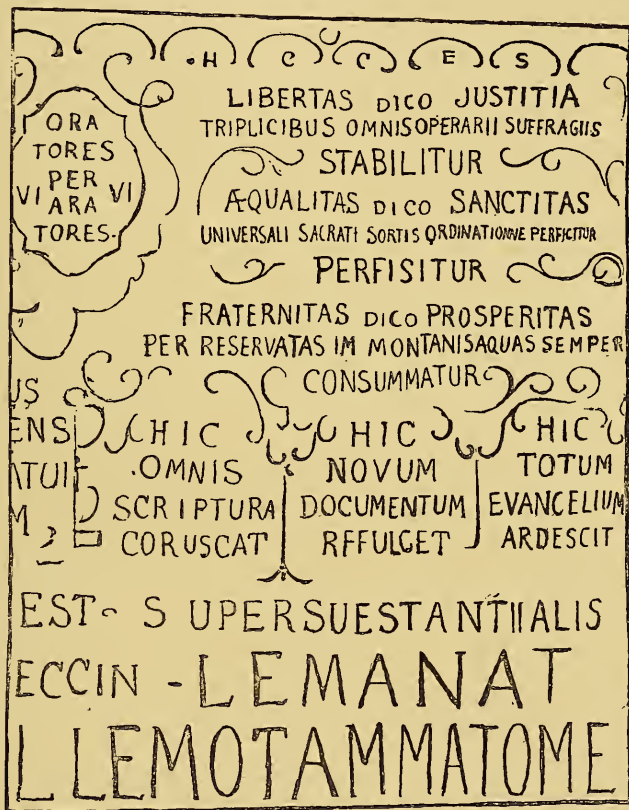 H C C E S
ORA
TORES
PER
VI ARA VI
TORES-
LIBERTAS DICO JUSTITIA
TRIPLICIBUS OMNISOPERARII SUFFRAGIIS
STABILITUR
ÆQUALITAS DICO SANCTITAS
UNIVERSALI SACRATI SORTIS ORDINATIONNE PERFICITUR
PERFISITUR
FRATERNITAS DICO PROSPERITAS
PER RESERVATAS IM MONTANISAQUAS SEMPER
CONSUMMATUR
US
ENS
ATUI
M
HIC
OMNIS
SCRIPTURA
CORUSCAT
HIC
NOVUM
DOCUMENTUM
RFFULGET
HIC
TOTUM
EVANCELIUM
ARDESCIT
EST- S UPERSUESTANTIIALIS
ECCIN - LEMANAT
L LEMOTAMMATOME